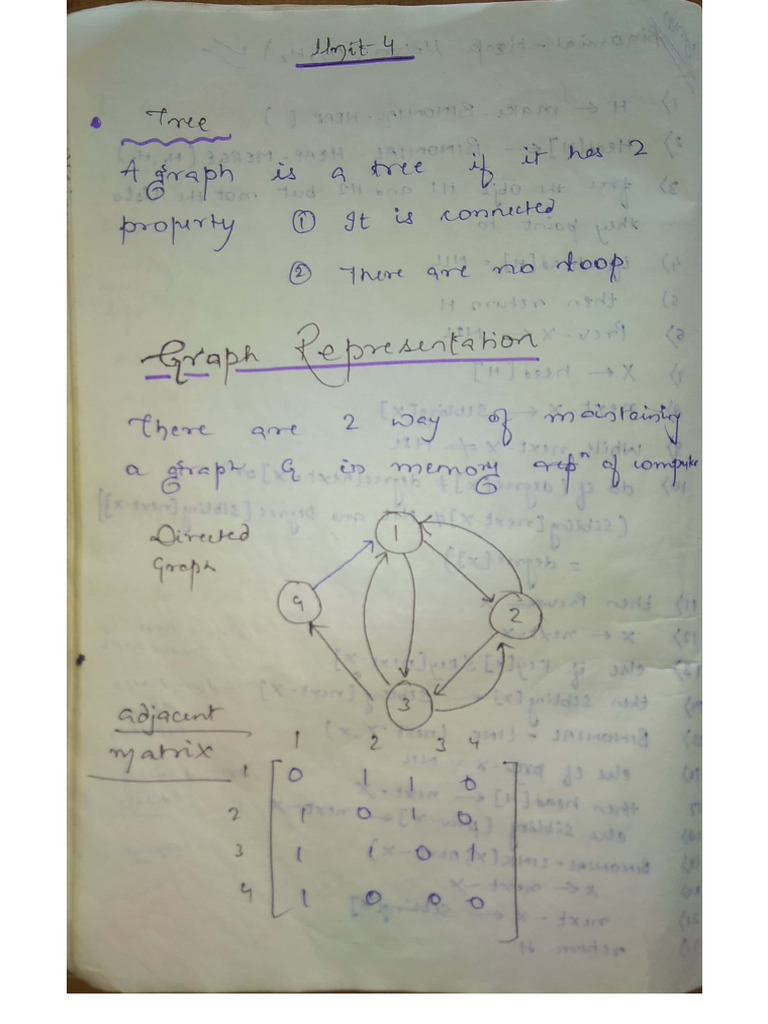 Unit-4
Tree
A graph is a tree if it has 2
property ① It is connected
② There are no loop
Graph Representation
There are 2 way of maintaining
a graph G in memory repⁿ of compute
Directed
Graph
1
4
2
3
adjacent
matrix
1 2 3 4
1 0 1 1 0
2 1 0 1 0
3 1 1 0 1
4 1 0 0 0